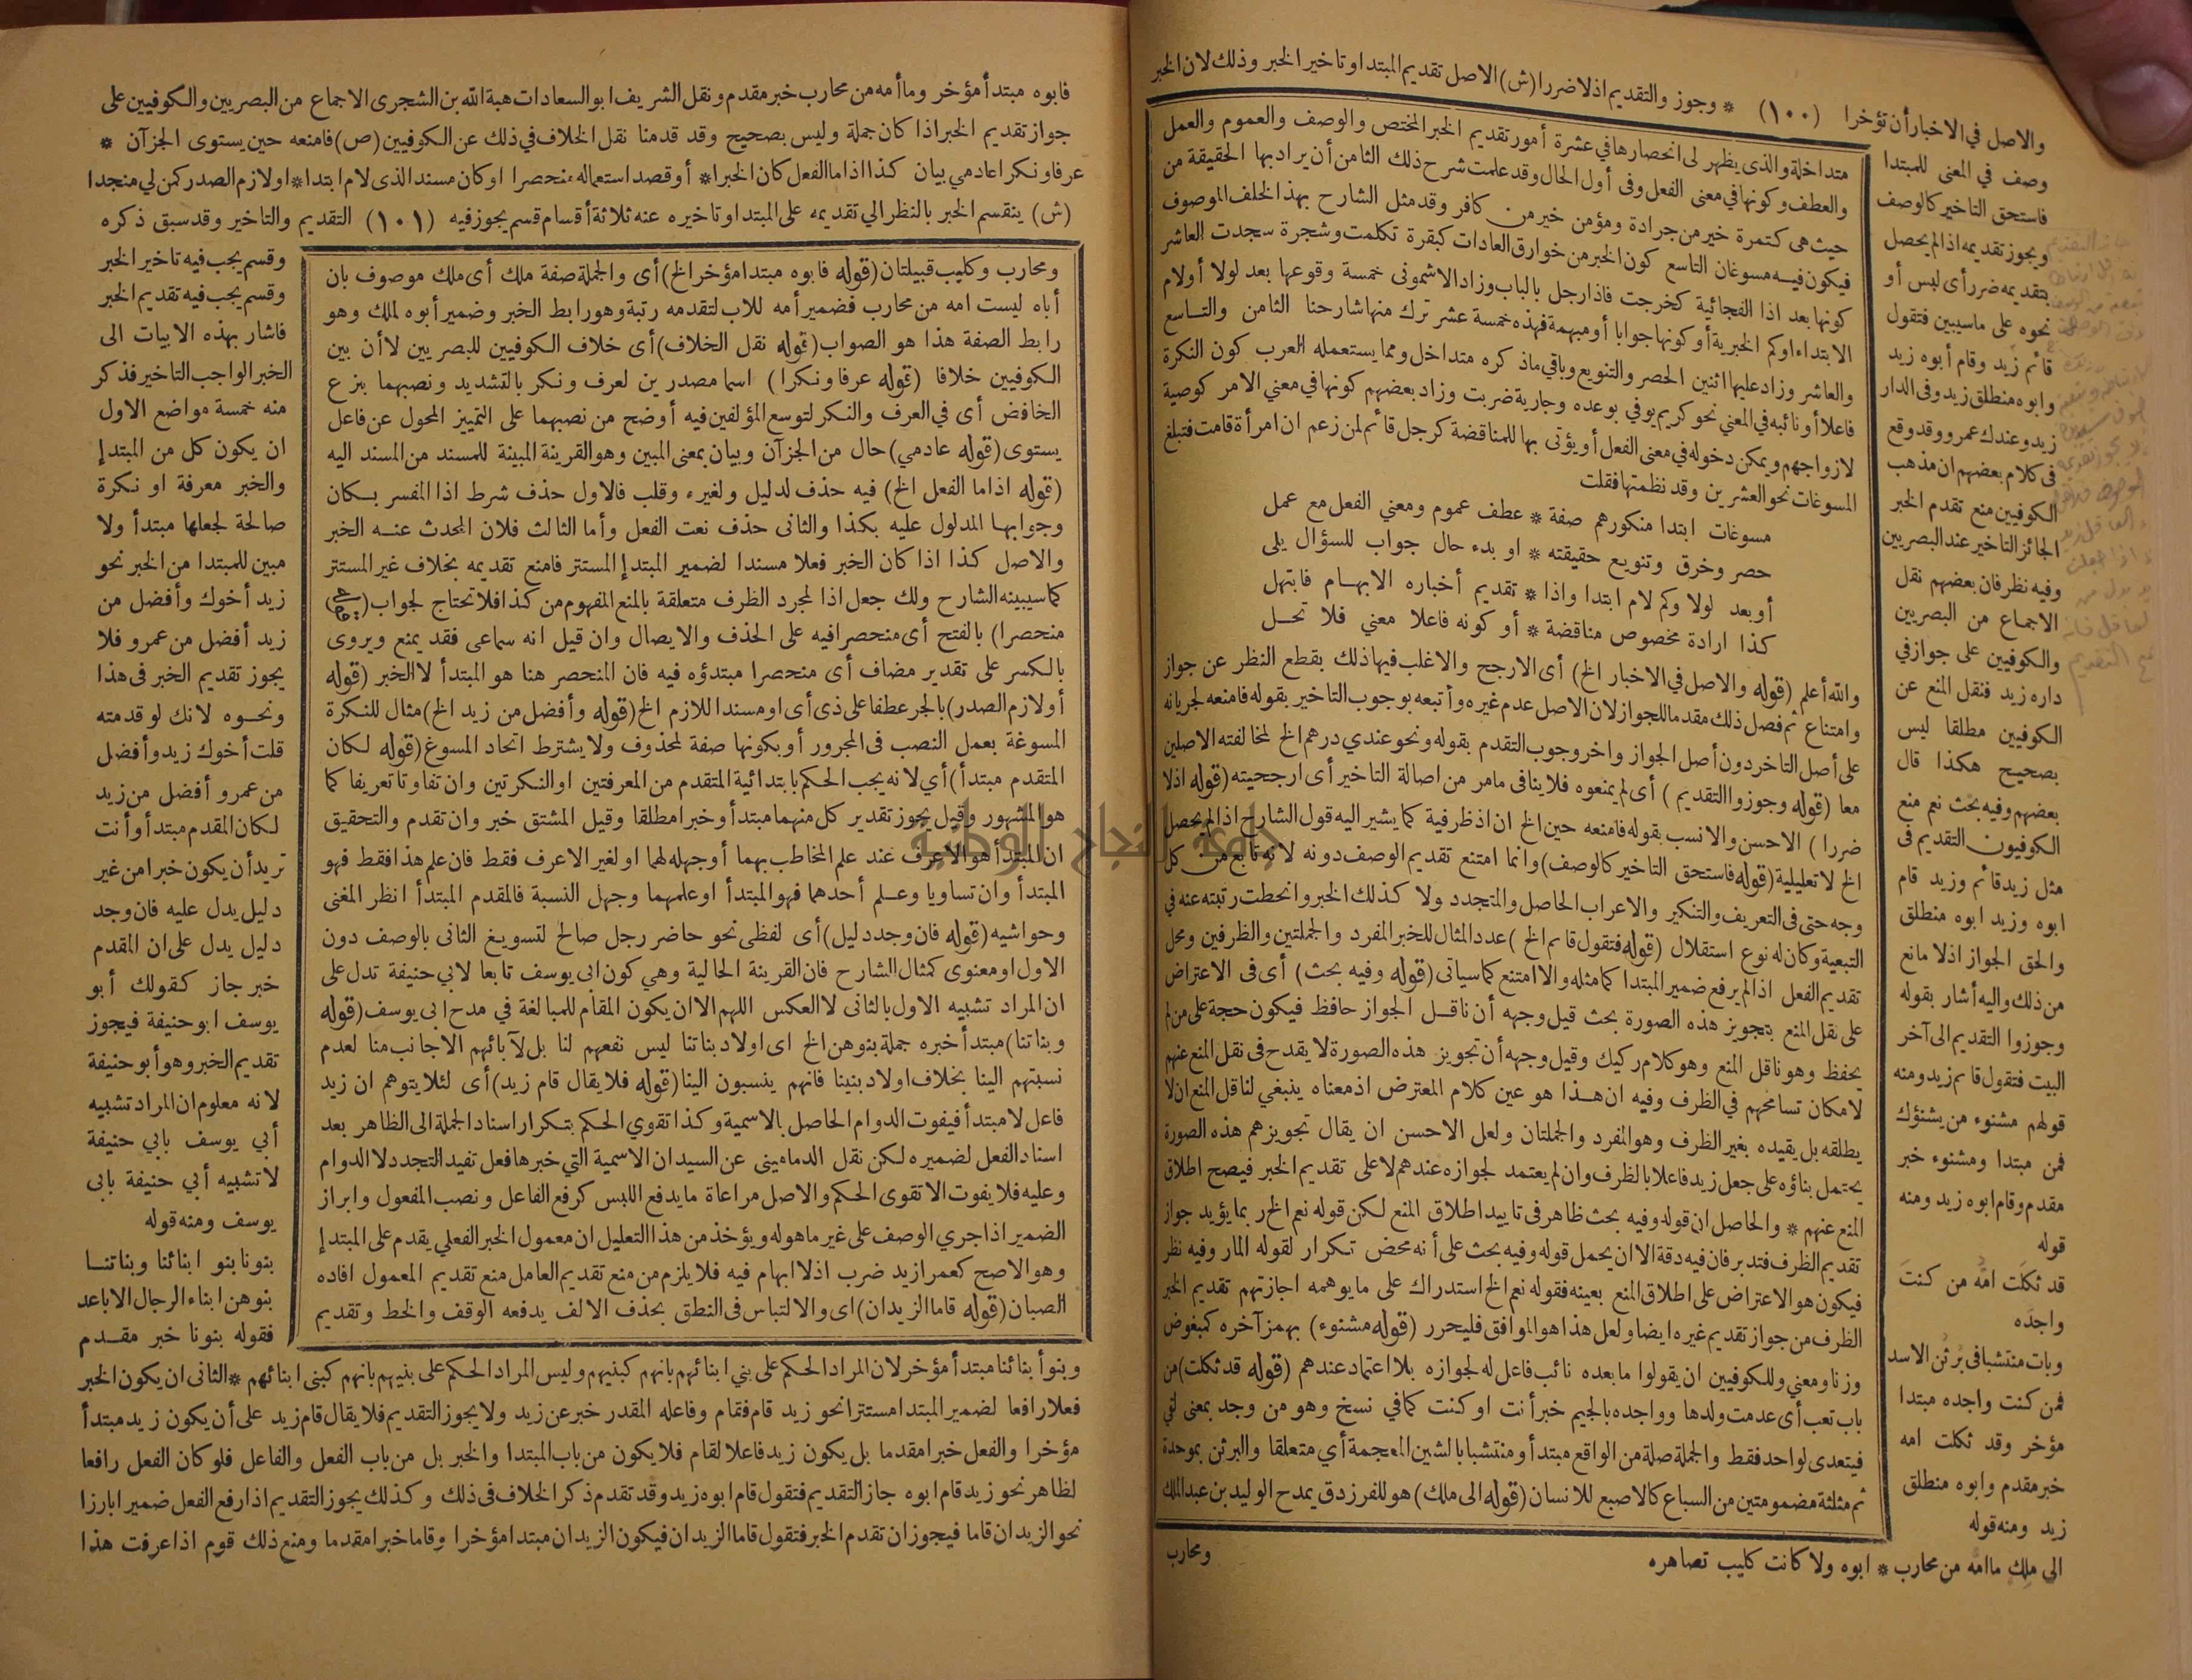 والاصل في الاخبار أن تؤخرا (١٠٠) * وجوزوا التقديم اذ لا ضررا (ش) الاصل تقديم المبتدا وتاخير الخبر وذلك لان الخبر
وصف في المعنى للمبتدا
فاستحق التاخير كالوصف
ويجوز تقديمه اذا لم يحصل
بتقديمه ضرر أى لبس أو
نحوه على ماسيبين فتقول
قائم زيد وقام أبوه زيد
وابوه منطلق زيد وفى الدار
زيد وعندك عمرو وقد وقع
فى كلام بعضهم ان مذهب
الكوفيين منع تقدم الخبر
الجائز التاخير عند البصريين
وفيه نظر فان بعضهم نقل
الاجماع من البصريين
والكوفيين على جواز في
داره زيد فنقل المنع عن
الكوفيين مطلقا ليس
بصحيح هكذا قال
بعضهم وفيه بحث نعم منع
الكوفيون التقديم فى
مثل زيد قائم وزيد قام
ابوه وزيد ابوه منطلق
والحق الجواز اذلا مانع
من ذلك واليه أشار بقوله
وجوزوا التقديم الى آخر
البيت فتقول قائم زيد ومنه
قولهم مشنوء من يشنؤك
فمن مبتدا ومشنوء خبر
مقدم وقام ابوه زيد ومنه
قوله
قد ثكلت امه من كنت
واجده
وبات منتشبا فى برثن الاسد
فمن كنت واجده مبتدا
مؤخر وقد ثكلت امه
خبر مقدم وابوه منطلق
زيد ومنه قوله
الى ملك ما امه من محارب * ابوه ولا كانت كليب تصاهره
متداخلة والذى يظهر لى انحصارها في عشرة أمور تقديم الخبر المختص والوصف والعموم والعمل
والعطف وكونها في معنى الفعل وفى أول الحال وقد علمت شرح ذلك الثامن أن يراد بها الحقيقة من
حيث هى كتمرة خير من جرادة ومؤمن خير من كافر وقد مثل الشارح بهذا لخلف الموصوف
فيكون فيه مسوغان التاسع كون الخبر من خوارق العادات كبقرة تكلمت وشجرة سجدت العاشر
كونها بعد اذا الفجائية كخرجت فاذا رجل بالباب وزاد الاشمونى خمسة وقوعها بعد لولا أو لام
الابتداء او كم الخبرية أو كونها جوابا أو مبهمة فهذه خمسة عشر ترك منها شارحنا الثامن والتاسع
والعاشر وزاد عليها اثنين الحصر والتنويع وباقي ماذكره متداخل ومما يستعمله العرب كون النكرة
فاعلا أو نائبه في المعنى نحو كريم يوفي بوعده وجارية ضربت وزاد بعضهم كونها في معنى الامر كوصية
لازواجهم ويمكن دخوله في معنى الفعل أو يؤتى بها للمناقضة كرجل قائم لمن زعم ان امرأة قامت فتبلغ
المسوغات نحو العشرين وقد نظمتها فقلت
مسوغات ابتدا منكورهم صفة * عطف عموم ومعنى الفعل مع عمل
حصر وخرق وتنويع حقيقته * او بدء حال جواب للسؤال يلى
أو بعد لولا وكم لام ابتدا واذا * تقديم أخباره الابهام فابتهل
كذا ارادة مخصوص مناقضة * أو كونه فاعلا معنى فلا تحل
والله أعلم (قوله والاصل في الاخبار الخ) أى الارجح والاغلب فيها ذلك بقطع النظر عن جواز
وامتناع ثم فصل ذلك مقدما للجواز لان الاصل عدم غيره وأتبعه بوجوب التاخير بقوله فامنعه لجريانه
على أصل التاخر دون أصل الجواز واخر وجوب التقدم بقوله ونحو عندي درهم الخ لمخالفته الاصلين
معا (قوله وجوزوا التقديم) أى لم يمنعوه فلا ينافى مامر من اصالة التاخير أى ارجحيته (قوله اذلا
ضررا) الاحسن والانسب بقوله فامنعه حين الخ ان اذ ظرفية كما يشير اليه قول الشارح اذا لم يحصل
الخ لا تعليلية (قوله فاستحق التاخير كالوصف) وانما امتنع تقديم الوصف دونه لانه تابع من كل
وجه حتى فى التعريف والتنكير والاعراب الحاصل والمتجدد ولا كذلك الخبر وانحطت رتبته عنه في
التبعية وكان له نوع استقلال (قوله فتقول قائم الخ) عدد المثال للخبر المفرد والجملتين والظرفين ومحل
تقديم الفعل اذا لم يرفع ضمير المبتدا كما مثله والا امتنع كما سياتى (قوله وفيه بحث) أى فى الاعتراض
على نقل المنع بتجويز هذه الصورة بحث قيل وجهه أن ناقل الجواز حافظ فيكون حجة على من لم
يحفظ وهو ناقل المنع وهو كلام ركيك وقيل وجهه أن تجويز هذه الصورة لا يقدح فى نقل المنع عنهم
لامكان تسامحهم في الظرف وفيه ان هذا هو عين كلام المعترض اذ معناه ينبغي لناقل المنع ان لا
يطلقه بل يقيده بغير الظرف وهو المفرد والجملتان ولعل الاحسن ان يقال تجويزهم هذه الصورة
يحتمل بناؤه على جعل زيد فاعلا بالظرف وان لم يعتمد لجوازه عندهم لا على تقديم الخبر فيصح اطلاق
المنع عنهم * والحاصل ان قوله وفيه بحث ظاهر فى تاييد اطلاق المنع لكن قوله نعم الخ ربما يؤيد جواز
تقديم الظرف فتدبر فان فيه دقة الا ان يحمل قوله وفيه بحث على أنه محض تكرار لقوله المار وفيه نظر
فيكون هو الاعتراض على اطلاق المنع بعينه فقوله نعم الخ استدراك على مايوهمه اجازتهم تقديم الخبر
الظرف من جواز تقديم غيره ايضا ولعل هذا هو الموافق فليحرر (قوله مشنوء) بهمز آخره كمبغوض
وزنا ومعنى وللكوفيين ان يقولوا ما بعده نائب فاعل له لجوازه بلا اعتماد عندهم (قوله قد ثكلت) من
باب تعب أى عدمت ولدها وواجده بالجيم خبر أنت او كنت كما في نسخ وهو من وجد بمعنى لقي
فيتعدى لواحد فقط والجملة صلة من الواقع مبتدأ ومنتشبا بالشين المعجمة أي متعلقا والبرثن بموحدة
ثم مثلثة مضمومتين من السباع كالاصبع للانسان (قوله الى ملك) هو للفرزدق يمدح الوليد بن عبد الملك
ومحارب
فابوه مبتدأ مؤخر وما أمه من محارب خبر مقدم ونقل الشريف ابو السعادات هبة الله بن الشجرى الاجماع من البصريين والكوفيين على
جواز تقديم الخبر اذا كان جملة وليس بصحيح وقد قدمنا نقل الخلاف في ذلك عن الكوفيين (ص) فامنعه حين يستوى الجزآن *
عرفا ونكرا عادمي بيان كذا اذا ما الفعل كان الخبرا * أو قصد استعماله منحصرا او كان مسندا لذى لام ابتدا * او لازم الصدر كمن لي منجدا
(ش) ينقسم الخبر بالنظر الي تقديمه على المبتدا وتاخيره عنه ثلاثة أقسام قسم يجوز فيه (١٠١) التقديم والتاخير وقد سبق ذكره
وقسم يجب فيه تاخير الخبر
وقسم يجب فيه تقديم الخبر
فاشار بهذه الابيات الى
الخبر الواجب التاخير فذكر
منه خمسة مواضع الاول
ان يكون كل من المبتدإ
والخبر معرفة او نكرة
صالحة لجعلها مبتدأ ولا
مبين للمبتدا من الخبر نحو
زيد أخوك وأفضل من
زيد أفضل من عمرو فلا
يجوز تقديم الخبر فى هذا
ونحوه لانك لو قدمته
قلت أخوك زيد وأفضل
من عمرو أفضل من زيد
لكان المقدم مبتدأ وأنت
تريد أن يكون خبرا من غير
دليل يدل عليه فان وجد
دليل يدل على ان المقدم
خبر جاز كقولك أبو
يوسف ابو حنيفة فيجوز
تقديم الخبر وهو أبو حنيفة
لانه معلوم ان المراد تشبيه
أبي يوسف بابي حنيفة
لا تشبيه أبي حنيفة بابى
يوسف ومنه قوله
بنونا بنو ابنائنا وبناتنا
بنوهن ابناء الرجال الاباعد
فقوله بنونا خبر مقدم
ومحارب وكليب قبيلتان (قوله فابوه مبتدا مؤخر الخ) أى والجملة صفة ملك أى ملك موصوف بان
أباه ليست امه من محارب فضمير أمه للاب لتقدمه رتبة وهو رابط الخبر وضمير أبوه لملك وهو
رابط الصفة هذا هو الصواب (قوله نقل الخلاف) أى خلاف الكوفيين للبصريين لا أن بين
الكوفيين خلافا (قوله عرفا ونكرا) اسما مصدرين لعرف ونكر بالتشديد ونصبهما بنزع
الخافض أى في العرف والنكر لتوسع المؤلفين فيه أوضح من نصبهما على التمييز المحول عن فاعل
يستوى (قوله عادمي) حال من الجزآن وبيان بمعنى المبين وهو القرينة المبينة للمسند من المسند اليه
(قوله اذا ما الفعل الخ) فيه حذف لدليل ولغيره وقلب فالاول حذف شرط اذا المفسر بكان
وجوابها المدلول عليه بكذا والثانى حذف نعت الفعل وأما الثالث فلان المحدث عنه الخبر
والاصل كذا اذا كان الخبر فعلا مسندا لضمير المبتدإ المستتر فامنع تقديمه بخلاف غير المستتر
كما سيبينه الشارح ولك جعل اذا لمجرد الظرف متعلقة بالمنع المفهوم من كذا فلا تحتاج لجواب (قوله
منحصرا) بالفتح أى منحصرا فيه على الحذف والايصال وان قيل انه سماعى فقد يمنع ويروى
بالكسر على تقدير مضاف أى منحصرا مبتدؤه فيه فان المنحصر هنا هو المبتدأ لا الخبر (قوله
أو لازم الصدر) بالجر عطفا على ذى أى او مسندا للازم الخ (قوله وأفضل من زيد الخ) مثال للنكرة
المسوغة بعمل النصب فى المجرور أو بكونها صفة لمحذوف ولا يشترط اتحاد المسوغ (قوله لكان
المتقدم مبتدأ) أي لانه يجب الحكم بابتدائية المتقدم من المعرفتين او النكرتين وان تفاوتا تعريفا كما
هو المشهور وقيل يجوز تقدير كل منهما مبتدأ وخبرا مطلقا وقيل المشتق خبر وان تقدم والتحقيق
ان المبتدأ هو الاعرف عند علم المخاطب بهما أو جهله لهما او لغير الاعرف فقط فان علم هذا فقط فهو
المبتدأ وان تساويا وعلم أحدهما فهو المبتدأ او علمهما وجهل النسبة فالمقدم المبتدأ انظر المغنى
وحواشيه (قوله فان وجد دليل) أى لفظى نحو حاضر رجل صالح لتسويغ الثانى بالوصف دون
الاول او معنوى كمثال الشارح فان القرينة الحالية وهي كون ابى يوسف تابعا لابي حنيفة تدل على
ان المراد تشبيه الاول بالثانى لا العكس اللهم الا ان يكون المقام للمبالغة في مدح ابى يوسف (قوله
وبناتنا) مبتدأ خبره جملة بنوهن الخ اى اولاد بناتنا ليس نفعهم لنا بل لآبائهم الاجانب منا لعدم
نسبتهم الينا بخلاف اولاد بنينا فانهم ينسبون الينا (قوله فلا يقال قام زيد) أى لئلا يتوهم ان زيد
فاعل لا مبتدأ فيفوت الدوام الحاصل بالاسمية وكذا تقوي الحكم بتكرار اسناد الجملة الى الظاهر بعد
اسناد الفعل لضميره لكن نقل الدمامينى عن السيد ان الاسمية التي خبرها فعل تفيد التجدد لا الدوام
وعليه فلا يفوت الا تقوى الحكم والاصل مراعاة ما يدفع اللبس كرفع الفاعل ونصب المفعول وابراز
الضمير اذا جري الوصف على غير ما هو له ويؤخذ من هذا التعليل ان معمول الخبر الفعلي يقدم على المبتدإ
وهو الاصح كعمرا زيد ضرب اذ لا ابهام فيه فلا يلزم من منع تقديم العامل منع تقديم المعمول افاده
الصبان (قوله قاما الزيدان) اى والالتباس فى النطق بحذف الالف يدفعه الوقف والخط وتقديم
وبنو أبنائنا مبتدأ مؤخر لان المراد الحكم على بني ابنائهم بانهم كبنيهم وليس المراد الحكم على بنيهم بانهم كبنى ابنائهم * الثانى ان يكون الخبر
فعلا رافعا لضمير المبتدا مستترا نحو زيد قام فقام وفاعله المقدر خبر عن زيد ولا يجوز التقديم فلا يقال قام زيد على أن يكون زيد مبتدأ
مؤخرا والفعل خبرا مقدما بل يكون زيد فاعلا لقام فلا يكون من باب المبتدا والخبر بل من باب الفعل والفاعل فلو كان الفعل رافعا
لظاهر نحو زيد قام ابوه جاز التقديم فتقول قام ابوه زيد وقد تقدم ذكر الخلاف فى ذلك وكذلك يجوز التقديم اذا رفع الفعل ضميرا بارزا
نحو الزيدان قاما فيجوز ان تقدم الخبر فتقول قاما الزيدان فيكون الزيدان مبتدا مؤخرا وقاما خبرا مقدما ومنع ذلك قوم اذا عرفت هذا
جامعة النجاح الوطنية